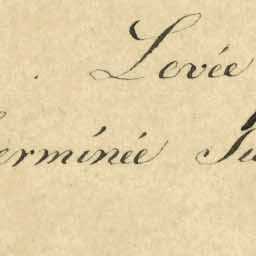 Lovée
erminée Ju